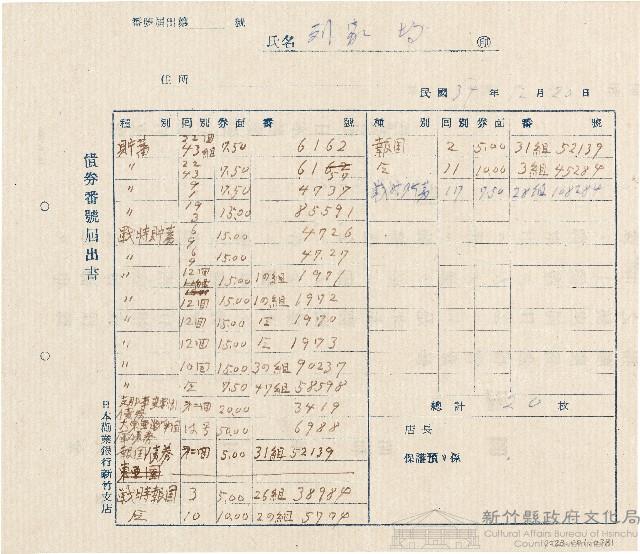 番號届出第 號
氏名 劉家均 ㊞
住所
民國 39 年 12 月 20 日
債券番號届出書
日本勸業銀行新竹支店
種 別 回別 券面 番 號
貯蓄 22回 43組 7.50 6162
〃 22 43 7.50 61
〃 9 7.50 4737
〃 19 3 15.00 85591
戰時貯蓄 6 9 15.00 4726
〃 6 9 15.00 4727
〃 12回 15.00 1の組 1971
〃 12回 15.00 1の組 1972
〃 12回 15.00 仝 1970
〃 12回 15.00 仝 1973
〃 10回 15.00 3の組 90237
〃 仝 7.50 47組 58598
20.00 3419
50.00 6988
報国債券 第二回 5.00 31組 52139
戰時報国 3 5.00 26組 38984
仝 10 10.00 2の組 5794
種 別 回別 券面 番 號
報国 2 5.00 31組 52139
仝 11 10.00 3組 45284
戰時貯蓄 17 7.50 28組 108284
總計 20 枚
店長
保護預り係
新竹縣政府文化局
Cultural Affairs Bureau of Hsinchu
County Government